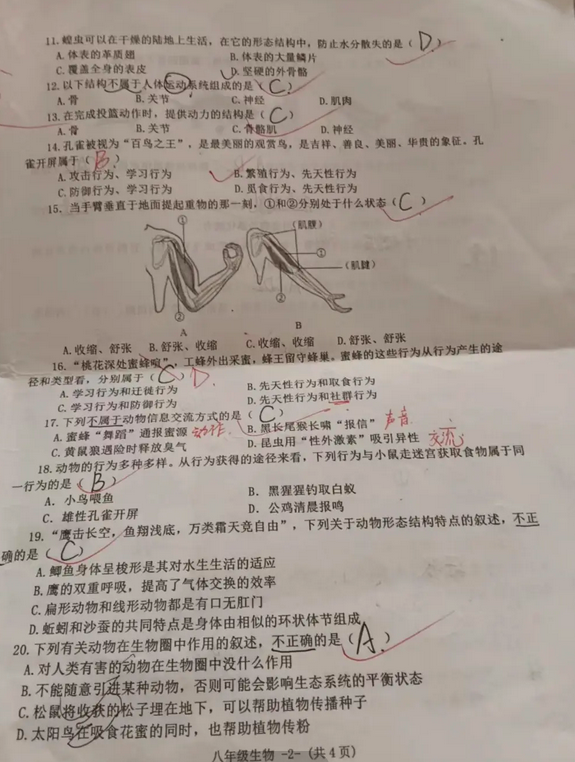 11. 蝗虫可以在干燥的陆地上生活，在它的形态结构中，防止水分散失的是（D）
A. 体表的革质翅 B. 体表的大量鳞片
C. 覆盖全身的表皮 D. 坚硬的外骨骼
12. 以下结构不属于人体运动系统组成的是（C）
A. 骨 B. 关节 C. 神经 D. 肌肉
13. 在完成投篮动作时，提供动力的结构是（C）
A. 骨 B. 关节 C. 骨骼肌 D. 神经
14. 孔雀被视为“百鸟之王”，是最美丽的观赏鸟，是吉祥、善良、美丽、华贵的象征。孔
雀开屏属于（B）
A. 攻击行为、学习行为 B. 繁殖行为、先天性行为
C. 防御行为、学习行为 D. 觅食行为、先天性行为
15. 当手臂垂直于地面提起重物的那一刻，①和②分别处于什么状态（C）
① （肌腱）
①
（肌腱）
② ②
A B
A. 收缩、舒张 B. 舒张、收缩 C. 收缩、收缩 D. 舒张、舒张
16. “桃花深处蜜蜂喧”，工蜂外出采蜜，蜂王留守蜂巢，蜜蜂的这些行为从行为产生的途
径和类型看，分别属于（C）D
A. 学习行为和迁徙行为 B. 先天性行为和取食行为
C. 学习行为和防御行为 D. 先天性行为和社群行为
17. 下列不属于动物信息交流方式的是（C）
A. 蜜蜂“舞蹈”通报蜜源 动作 B. 黑长尾猴长啸“报信” 声音
C. 黄鼠狼遇险时释放臭气 D. 昆虫用“性外激素”吸引异性 交流
18. 动物的行为多种多样。从行为获得的途径来看，下列行为与小鼠走迷宫获取食物属于同
一行为的是（B）
A. 小鸟喂鱼 B. 黑猩猩钓取白蚁
C. 雄性孔雀开屏 D. 公鸡清晨报鸣
19. “鹰击长空，鱼翔浅底，万类霜天竞自由”，下列关于动物形态结构特点的叙述，不正
确的是（C）
A. 鲫鱼身体呈梭形是其对水生生活的适应
B. 鹰的双重呼吸，提高了气体交换的效率
C. 扁形动物和线形动物都是有口无肛门
D. 蚯蚓和沙蚕的共同特点是身体由相似的环状体节组成
20. 下列有关动物在生物圈中作用的叙述，不正确的是（A）
A. 对人类有害的动物在生物圈中没什么作用
B. 不能随意引进某种动物，否则可能会影响生态系统的平衡状态
C. 松鼠将收获的松子埋在地下，可以帮助植物传播种子
D. 太阳鸟在吸食花蜜的同时，也帮助植物传粉
八年级生物 -2- (共 4 页)